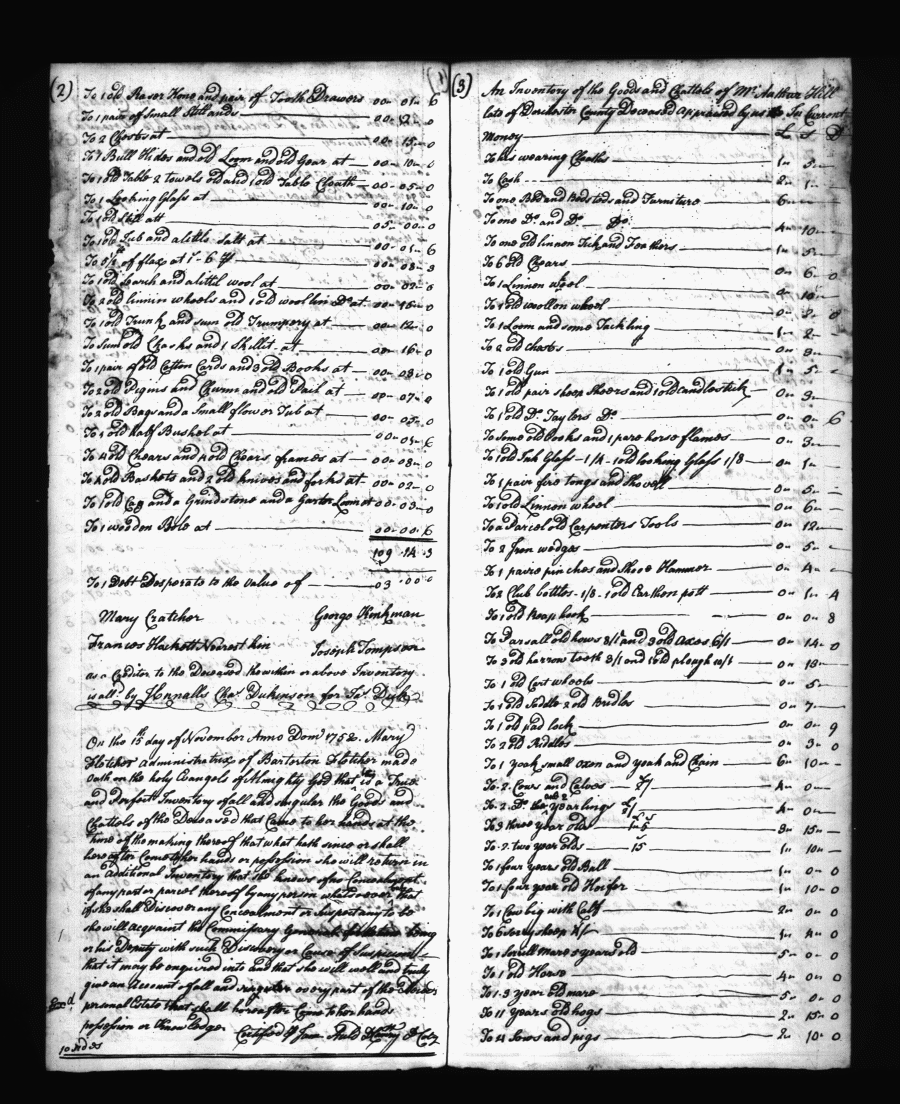 (2)
To 1 old Rasor Hone and pair of Tooth Drawers 00 - 01 - 6
To 1 pair of Small Stillards 00 - 12 - 0
To 2 Chests at 00 - 15 - 0
To 7 Bull Hides and old Loom and old Gear at 00 - 10 - 0
To 1 old Table 2 towels old and 1 old Table Cloath 00 - 05 - 0
To 1 Looking Glass at 00 - 10 - 0
To 1 old Still att 05 - 00 - 0
To 1 old Tub and a little Salt at 00 - 01 - 6
of flax at 00 - 03 - 3
To 1 old and a littel wool at 00 - 02 - 6
To 2 old linnin wheels and 1 old woollin Do at 00 - 15 - 0
To 1 old Trunk and sum old Trumpery at 00 - 12 - 0
To Sum old Chasks and 1 Skillit at 00 - 16 - 0
To 1 pair of old Cotton Cards and 3 old Books at 00 - 03 - 0
To 2 old Pigins and Churns and old Pail at 00 - 07 - 0
To 2 old Bags and a Small flower Tub at 00 - 03 - 0
To 1 old half Bushel at 00 - 01 - 6
To 4 old Chears and 4 old Chears frames at 00 - 08 - 0
To 2 old Baskets and 2 old knives and forks at 00 - 02 - 0
To 1 old and a Grindstone and a Garter Lom at 00 - 03 - 0
To 1 wooden Bole at 00 - 00 - 6
109 . 14 . 3
To 1 Debt Desperate to the value of 03 . 00 . 0
Mary Cratcher George Kinkman
Frances Hackett Nearest kin Joseph Tompson
as a Creditor to the Deceased the within or above Inventory
is all by Hennalls Chas Dickinson for Js Dick
On the 15 day of November Anno Dom 1752 Mary
Fletcher administratrix of Bartorton Fletcher made
Oath on the holy Evangels of Almighty God that this is a True
and Perfect Inventory of all and singular the Goods and
Chattels of the Deceased that Came to her hands at the
time of the making thereof that what hath since or shall
hereafter Come to her hands or possession she will return in
an additional Inventory that she knows of no Concealment
of any part or parcel thereof by any person whatsoever that
if she shall Discover any Concealment or Suspect any to be
she will acquaint the Commissary General
or his Deputy with such Discovery or Cause of Suspicion
that it may be enquired into and that she will well and truly
give an Account of all and singular every part of the Deceased
personal Estate that shall hereafter Come to her hands
possession or Knowledge Certified
(3)
An Inventory of the Goods and Chattels of Mr Arthur Hill
late of Dorchester County Deceased Appraised by us in Current
Money £ S D
To his wearing Cloaths 1 - 3 -
To Cash 2 - 1 -
To one Bed and Bedsteds and Furniture 6 -
To one Do and Do Do 4 - 10 -
To one old linnen Tick and Feathers 1 - 5 -
To 6 old Chears 0 - 6 - 0
To 1 Linnen wheel 0 - 10 -
To 1 old woollen wheel 0 - 2 - 0
To 1 Loom and some Tackling 1 - 2 -
To 2 old chests 0 - 8 -
To 1 old Gun 1 - 5 -
To 1 old pair sheep Sheers and 1 old candlestick 0 - 3 -
To 1 old Do Taylors Do 0 - 0 - 6
To some old books and 1 pare horse flames 0 - 3 -
To 1 old Ink Glass - 1/4 - 1 old looking Glass 1/8 0 - 1 -
To 1 pair fire tongs and shovell 0 - 5 -
To 1 old Linnon wheel 0 - 6 -
To a Parcel old Carpenters Tools 0 - 12 -
To 2 Iron wedges 0 - 5 -
To 1 paire pinches and Shoe Hammer 0 - 4 -
To 2 Club bottles - 1/8 - 1 old Earthen pott 0 - 1 - 4
To 1 old Reap hook 0 - 0 - 8
To Parsall old hows 8/ and 3 old axes 6/ 0 - 14 - 0
To 3 old harrow teeth 3/ and 1 old plough 0 - 18 -
To 1 old Cart wheels 0 - 5 -
To 1 old Saddle 2 old Bridles 0 - 7 -
To 1 old pad lock 0 - 0 - 9
To 2 old Riddles 0 - 3 - 0
To 1 yoak small oxon and yoak and Chain 6 - 10 -
To - 2 - Cows and Calves 4 - 0 -
To - 2 - Do two yearlings 4 - 0 -
To 3 three year olds 3 - 15 -
To - 2 - two year olds 15 1 - 10 -
To 1 four years old Bull 1 - 0 - 0
To 1 four year old Heifer 1 - 10 - 0
To 1 Cow big with Calf 2 - 0 - 0
To 6 sorry sheep 1 - 4 - 0
To 1 small mare 9 years old 5 - 0 - 0
To 1 old Horse 4 - 0 - 0
To 1 - 3 year old mare 5 - 0 - 0
To 11 years old hogs 2 - 15 - 0
To 4 Sows and pigs 2 - 10 - 0